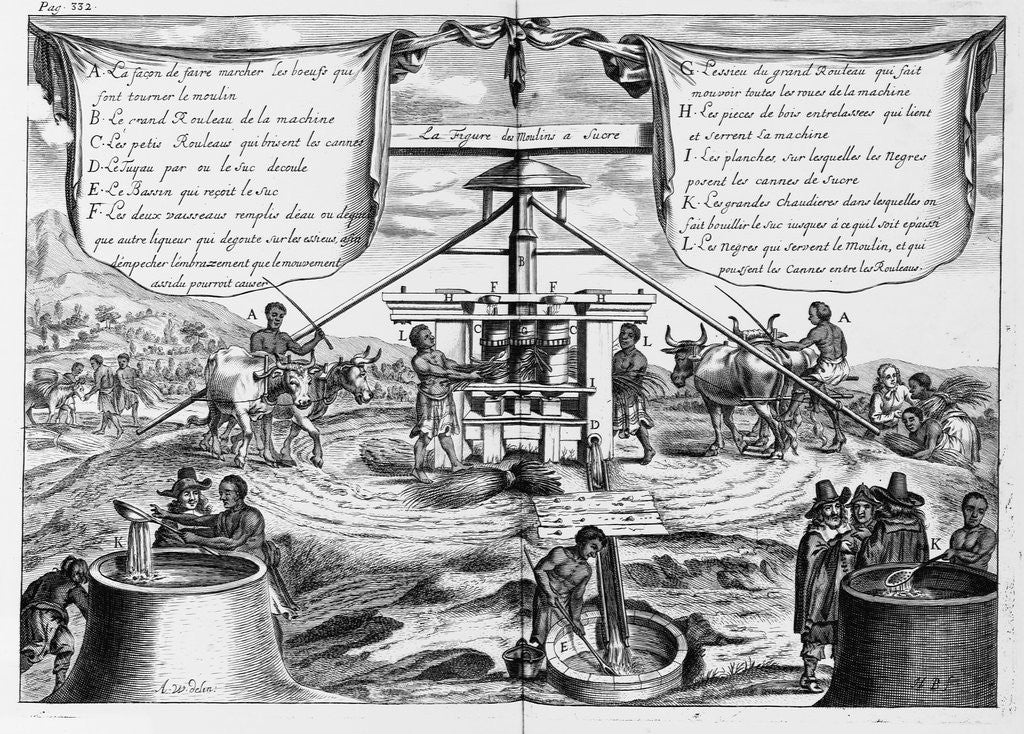 Pag. 332.
A. La façon de faire marcher les boeufs qui
font tourner le moulin
B. Le grand Rouleau de la machine
C. Les petis Rouleaus qui brisent les cannes
D. Le Tuyau par ou le suc decoule
E. Le Bassin qui reçoit le suc
F. Les deux vaisseaus remplis d'eau ou d'quel
que autre liqueur qui degoute sur les essieus, afin
d'empecher l'embrazement que le mouvement
assidu pourroit causer
La Figure des Moulins a Sucre
G. L'essieu du grand Rouleau qui fait
mouvoir toutes les roues de la machine
H. Les pieces de bois entrelassees qui lient
et serrent la machine
I. Les planches, sur lesquelles les Negres
posent les cannes de sucre
K. Les grandes chaudieres dans lesquelles on
fait bouillir le suc iusques à ce quil soit epaissi
L. Les Negres qui servent le Moulin, et qui
poussent les Cannes entre les Rouleaus.
B
F F
H H
A A
L C G C L
I
D
K K
E
A. W. delin: